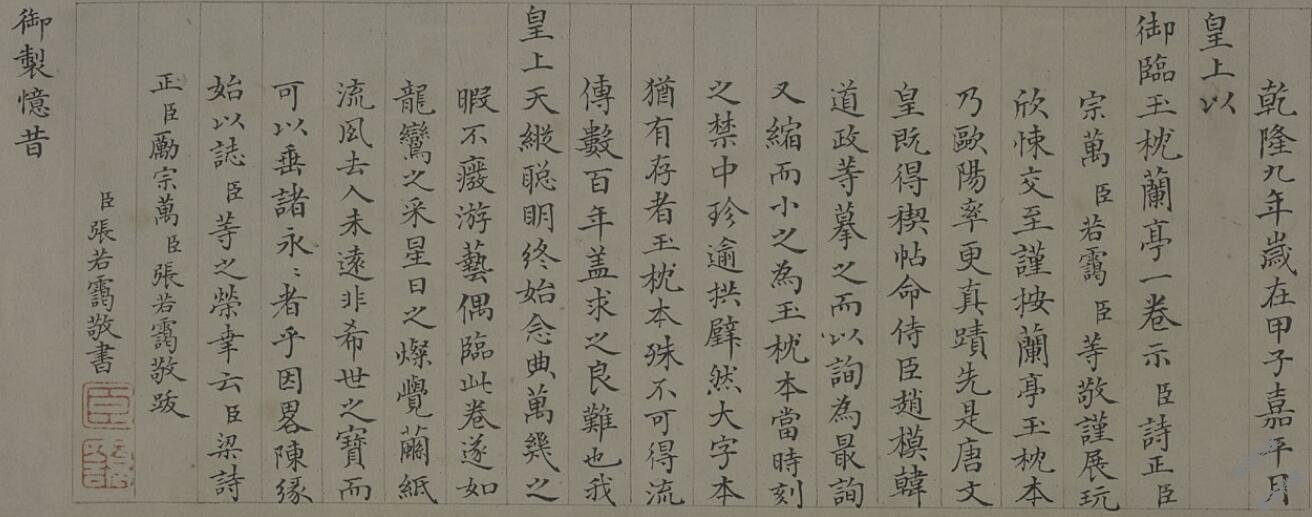 乾隆九年歲在甲子嘉平月
皇上以
御臨玉枕蘭亭一卷示臣詩正臣
宗萬臣若靄臣等敬謹展玩
欣悚交至謹按蘭亭玉枕本
乃歐陽率更真蹟先是唐文
皇既得禊帖命侍臣趙模韓
道政等摹之而以詢為最詢
又縮而小之為玉枕本當時刻
之禁中珍逾拱璧然大字本
猶有存者玉枕本殊不可得流
傳數百年盖求之良難也我
皇上天縱聰明終始念典萬幾之
暇不廢游藝偶臨此卷遂如
龍鸞之采星日之燦覺繭紙
流風去入未遠非希世之寶而
可以垂諸永〻者乎因畧陳緣
始以誌臣等之榮幸云臣梁詩
正臣勵宗萬臣張若靄敬跋
臣張若靄敬書
御製憶昔